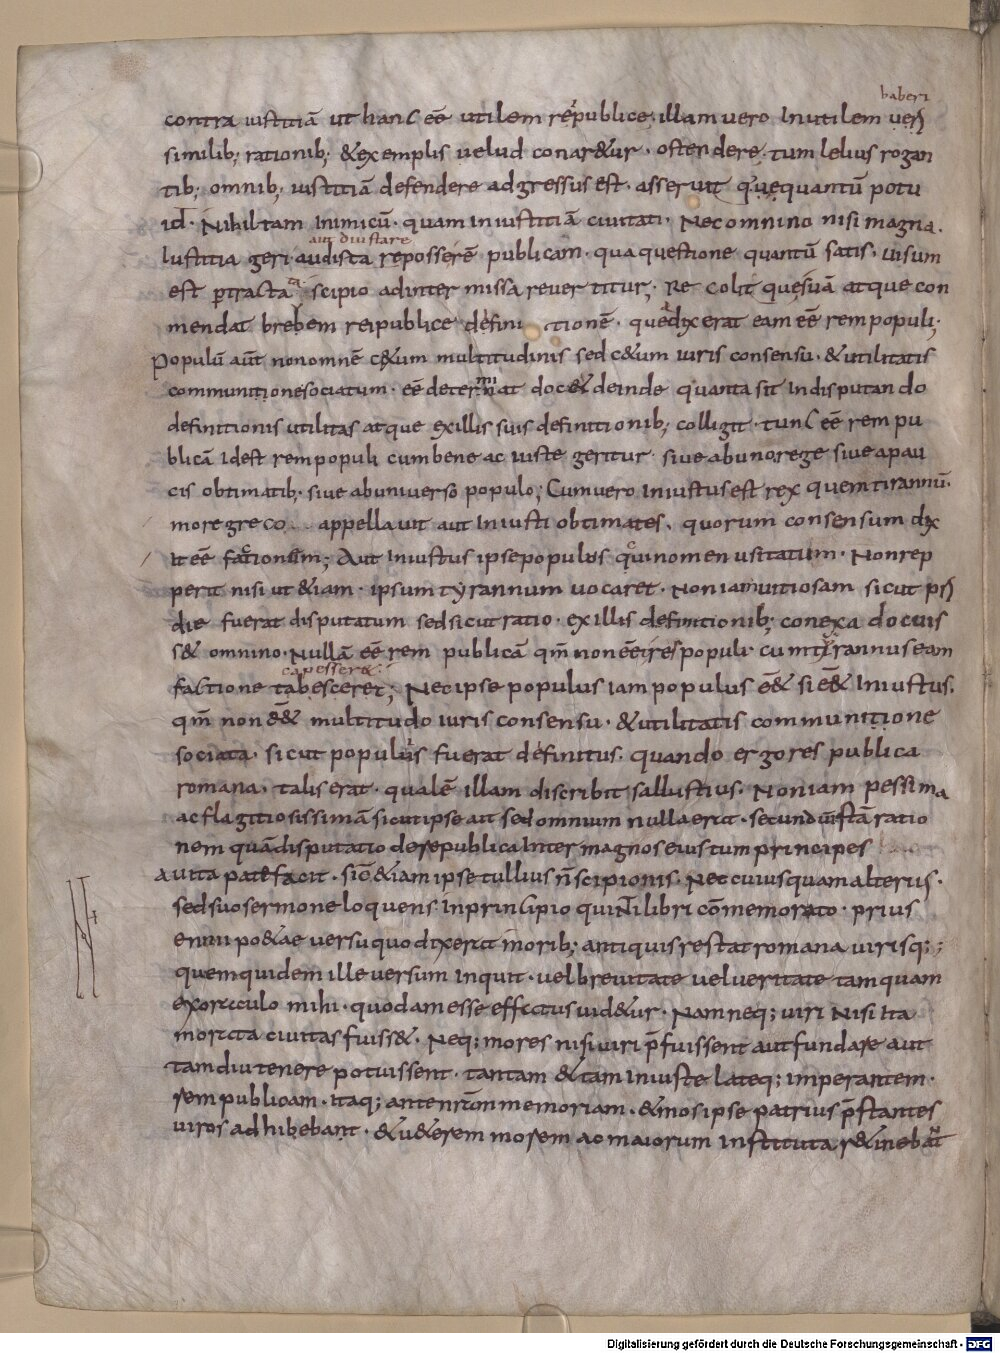 haberi
contra iustitiā ut hanc eē utilem rēpublice; illam uero Inutilem uerſ
similib; rationib; &exemplis uelud conar&ur · ostendere · tum lelius rogan
tib; omnib; iustitiā defendere adgressus est · asseruit q̄uequantū potu
id · Nihil tam Inimicū · quam Iniustitiā ciuitati · Nec omnino nisi magna ·
aut diu stare
Iustitia geri audista repossere̅ publicam · qua questione quantū satis · uisum
est ꝑtractata scipio adinter missa reuertitur; Re colit quesuā atque con
mendat brebem reipublice defini tionē · que dixerat eam eē rem populi;
Populū aut̄ non omnē c&um multitudinis sed c&um iuris consensu · &utilitatis
communitione sociatum · eē determinat doc& deinde quanta sit Indisputando
definitionis utilitas atque exillis suis definitionib; colligit · tunc eē rem pu
blicā Idest rem populi cum bene ac iuste geritur siue ab uno rege siue a pau
cis obtimatib; siue ab uniuerso populo; Cum uero Iniustus est rex quem tirannū ·
more greco appellauit aut Iniusti obtimates · quorum consensum dix
it eē factionem; Aut Iniustus ipse populus qui nomen usitatum · Non rep
perit nisi ut &iam · ipsum tyrannum uocaret · Non iam uitiosam sicut prſ
die fuerat disputatum sed sicut ratio · ex illis definitionib; conexa docuis
s& omnino · Nullā eē rem publicā qm̄ non eē& res populi cum tyrannus eam
capesser&
factione tabesceret; Nec ipse populus iam populus ē& si ē& Iniustus ·
qm̄ non ē& multitudo iuris consensu · &utilitatis communitione
sociata · sicut populus fuerat definitus · quando ergo res publica
romana · talis erat · qualē illam discribit sallustius · Non iam pessima
ac flagitiosissimā sicut ipse ait sed omnium nulla erat · secundū istā ratio
nem quā disputatio de republica Inter magnos eius tum principes
auita patefacit · sicō &iam ipse tullius n̄ scipionis · Nec cuiusquam alterius ·
sed suo sermone loquens In principio quinti libri cōmemorato · prius
ennii po&ae uersu quo dixerat morib; antiquis res stat romana uirisq;;
quem quidem ille uersum Inquit · uel breuitate uel ueritate tam quam
ex oraculo mihi · quodam esse effectus uid&ur · Nam neq; uiri Nisi Ita
morata ciuitas fuiss& · Neq; mores nisi uiri p̄fuissent aut fundare aut
tam diu tenere potuissent · tantam &tam Iniuste lateq; imperantem ·
rem publicam · Itaq; ante nr̄am memoriam · &mos ipse patrius p̄stantes
uiros adhibebant · &u&erem morem ac maiorum Instituta r&inebat